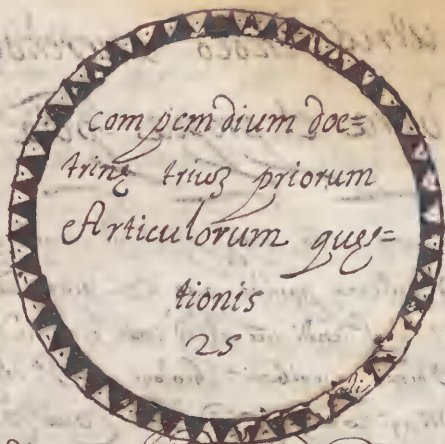 compemdium doc=
trinę triuʒ priorum
Articulorum ques=
tionis
25